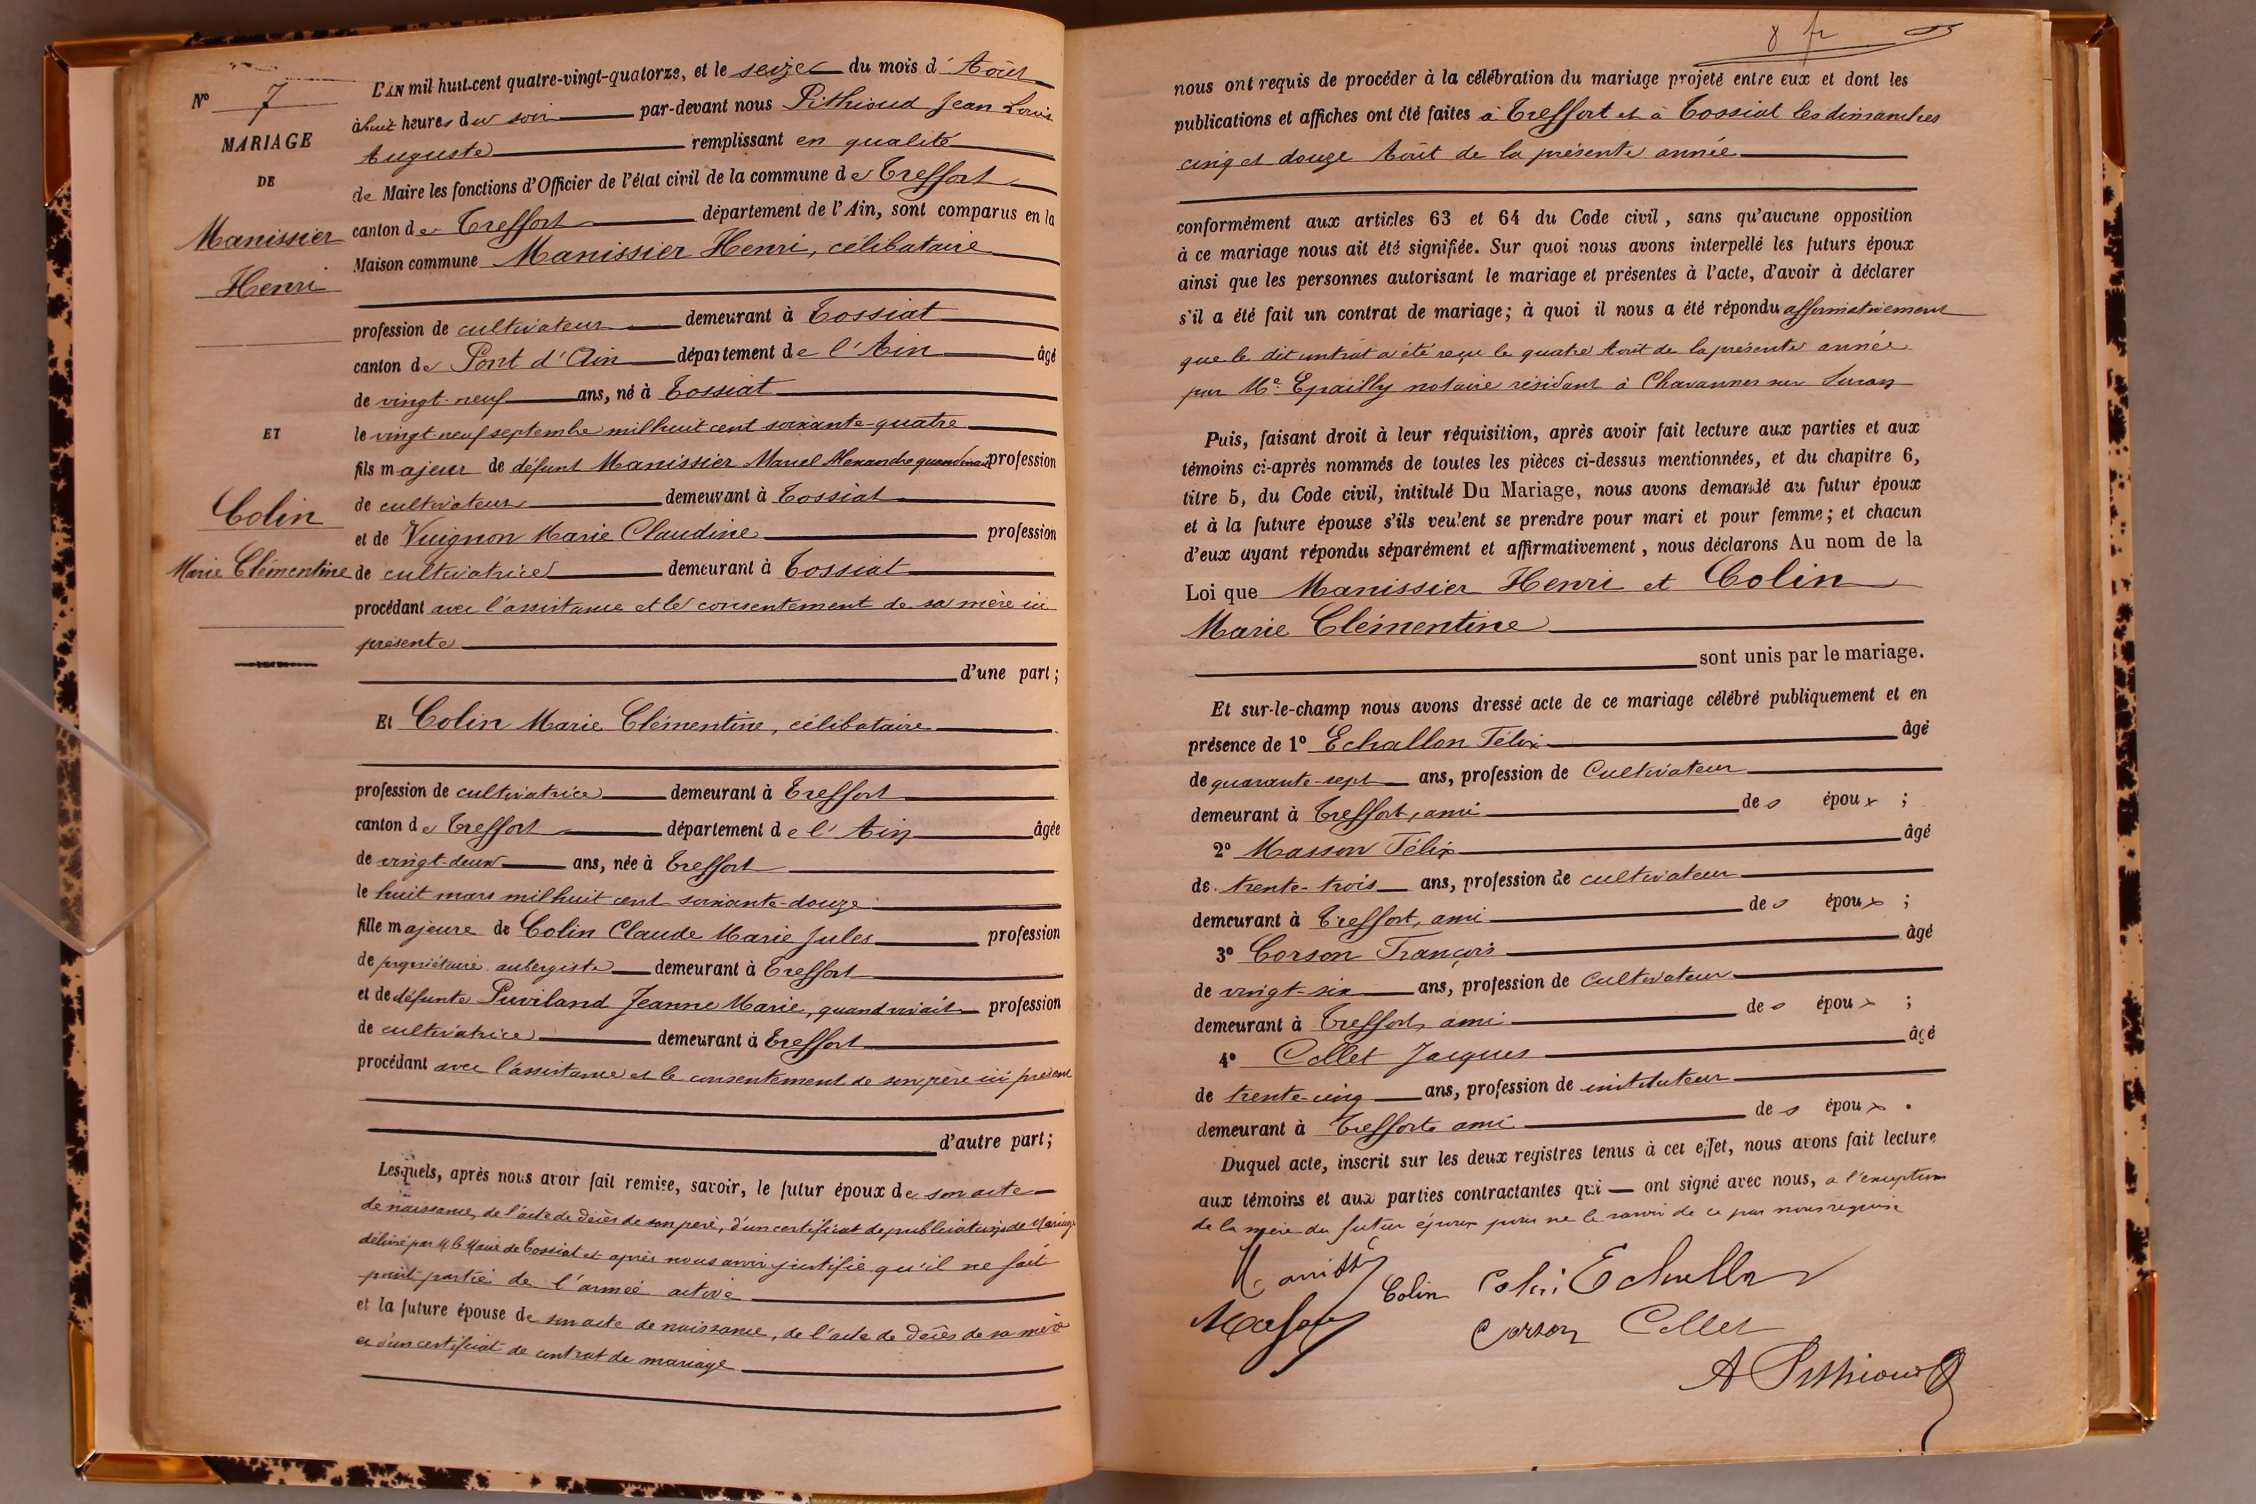 N° 7
MARIAGE
DE
Manissier
Henri
ET
Colin
Marie Clémentine
L'AN mil huit-cent quatre-vingt-quatorze, et le seize du mois d'Août
à huit heures du soir par-devant nous Pithioud Jean Louis
Auguste remplissant en qualité
de Maire les fonctions d'Officier de l'état civil de la commune de Treffort
canton de Treffort département de l'Ain, sont comparus en la
Maison commune Manissier Henri, célibataire
profession de cultivateur demeurant à Tossiat
canton de Pont d'Ain département de l'Ain âgé
de vingt-neuf ans, né à Tossiat
le vingt neuf septembre mil huit cent soixante-quatre
fils majeur de défunt Manissier Marcel Alexandre quand vivait profession
de cultivateur demeurant à Tossiat
et de Vuignon Marie Claudine profession
de cultivatrice demeurant à Tossiat
procédant avec l'assistance et le consentement de sa mère ici
présente
d'une part ;
Et Colin Marie Clémentine, célibataire
profession de cultivatrice demeurant à Treffort
canton de Treffort département de l'Ain âgée
de vingt-deux ans, née à Treffort
le huit mars mil huit cent soixante-douze
fille majeure de Colin Claude Marie Jules profession
de propriétaire aubergiste demeurant à Treffort
et de défunte Puviland Jeanne Marie, quand vivait profession
de cultivatrice demeurant à Treffort
procédant avec l'assistance et le consentement de son père ici présent
d'autre part ;
Lesquels, après nous avoir fait remise, savoir, le futur époux de son acte
de naissance, de l'acte de décès de son père, d'un certificat de publications de Mariage
délivré par M. le Maire de Tossiat et après nous avoir justifié qu'il ne fait
point partie de l'armée active
et la future épouse de son acte de naissance, de l'acte de décès de sa mère
et d'un certificat de contrat de mariage
8 fr
nous ont requis de procéder à la célébration du mariage projeté entre eux et dont les
publications et affiches ont été faites à Treffort et à Tossiat les dimanches
cinq et douze Août de la présente année
conformément aux articles 63 et 64 du Code civil, sans qu'aucune opposition
à ce mariage nous ait été signifiée. Sur quoi nous avons interpellé les futurs époux
ainsi que les personnes autorisant le mariage et présentes à l'acte, d'avoir à déclarer
s'il a été fait un contrat de mariage ; à quoi il nous a été répondu affirmativement
que le dit contrat a été reçu le quatre Août de la présente année
par Me Epailly notaire résidant à Chavannes sur Suran
Puis, faisant droit à leur réquisition, après avoir fait lecture aux parties et aux
témoins ci-après nommés de toutes les pièces ci-dessus mentionnées, et du chapitre 6,
titre 5, du Code civil, intitulé Du Mariage, nous avons demandé au futur époux
et à la future épouse s'ils veulent se prendre pour mari et pour femme ; et chacun
d'eux ayant répondu séparément et affirmativement, nous déclarons Au nom de la
Loi que Manissier Henri et Colin
Marie Clémentine
sont unis par le mariage.
Et sur-le-champ nous avons dressé acte de ce mariage célébré publiquement et en
présence de 1° Echallon Félix âgé
de quarante-sept ans, profession de Cultivateur
demeurant à Treffort, ami des époux ;
2° Masson Félix âgé
de trente-trois ans, profession de cultivateur
demeurant à Treffort, ami des époux ;
3° Corson François âgé
de vingt-six ans, profession de Cultivateur
demeurant à Treffort, ami des époux ;
4° Collet Jacques âgé
de trente-cinq ans, profession de instituteur
demeurant à Treffort ami des époux .
Duquel acte, inscrit sur les deux registres tenus à cet effet, nous avons fait lecture
aux témoins et aux parties contractantes qui ont signé avec nous, à l'exception
de la mère du futur époux pour ne le savoir de ce par nous requise
Colin Colin Echallon
Masson Corson Collet
A Pithioud